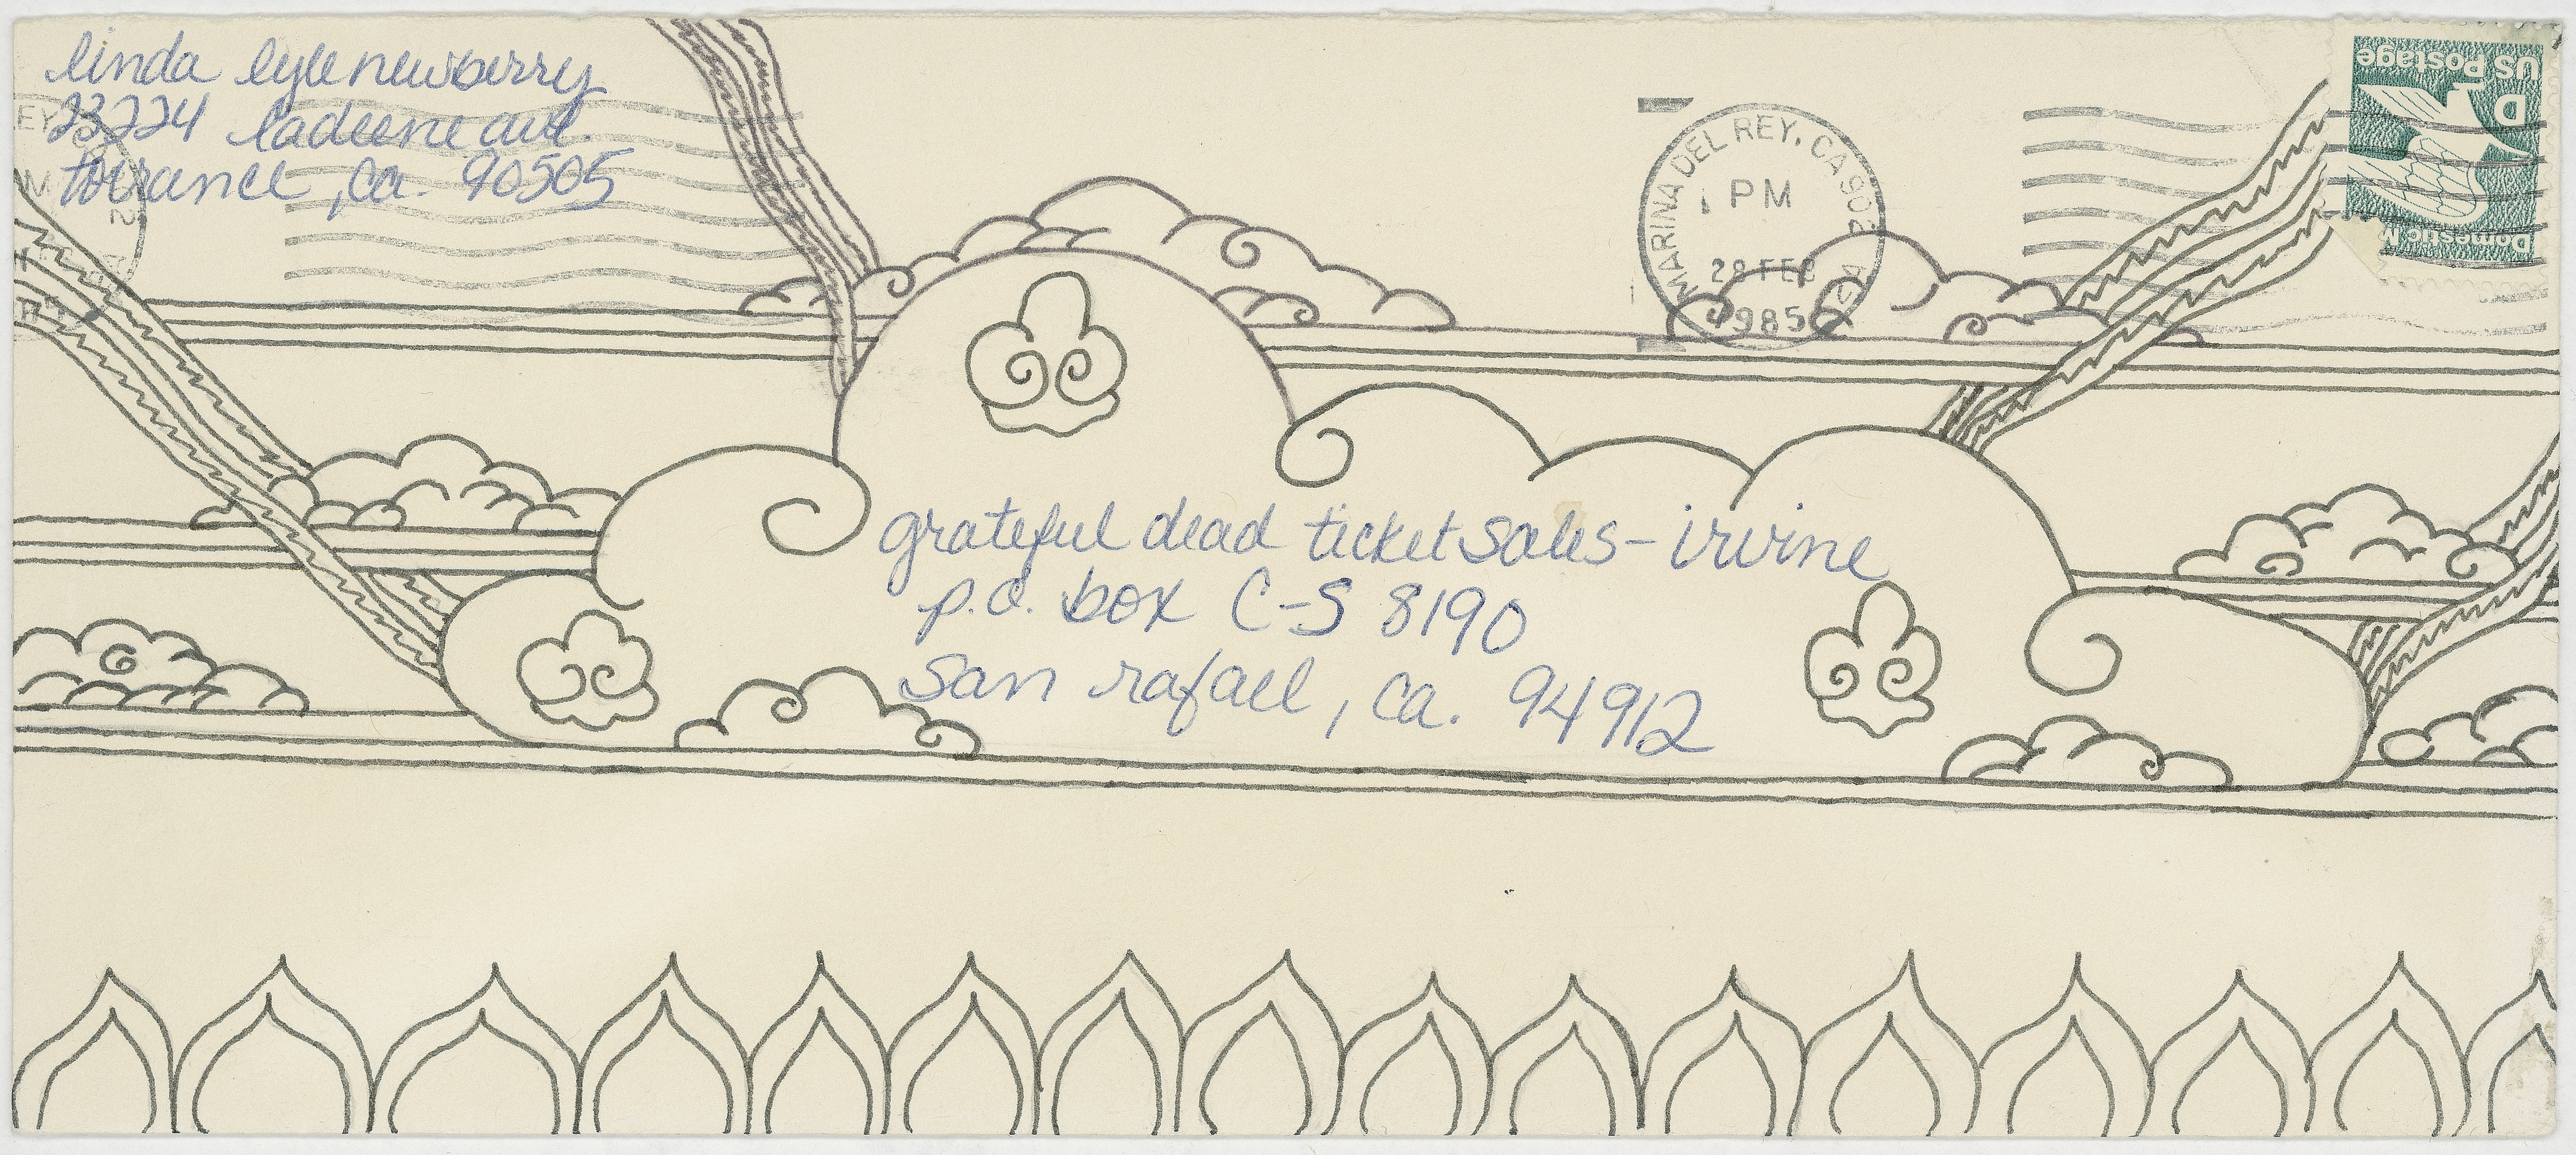 linda lyle newberry
23224 ladeene ave.
torrance, ca. 90505
MARINA DEL REY, CA 902
PM
28 FEB
1985
US Postage
D
Domestic M
grateful dead ticket sales - irvine
p.o. box C-S 8190
san rafael, ca. 94912